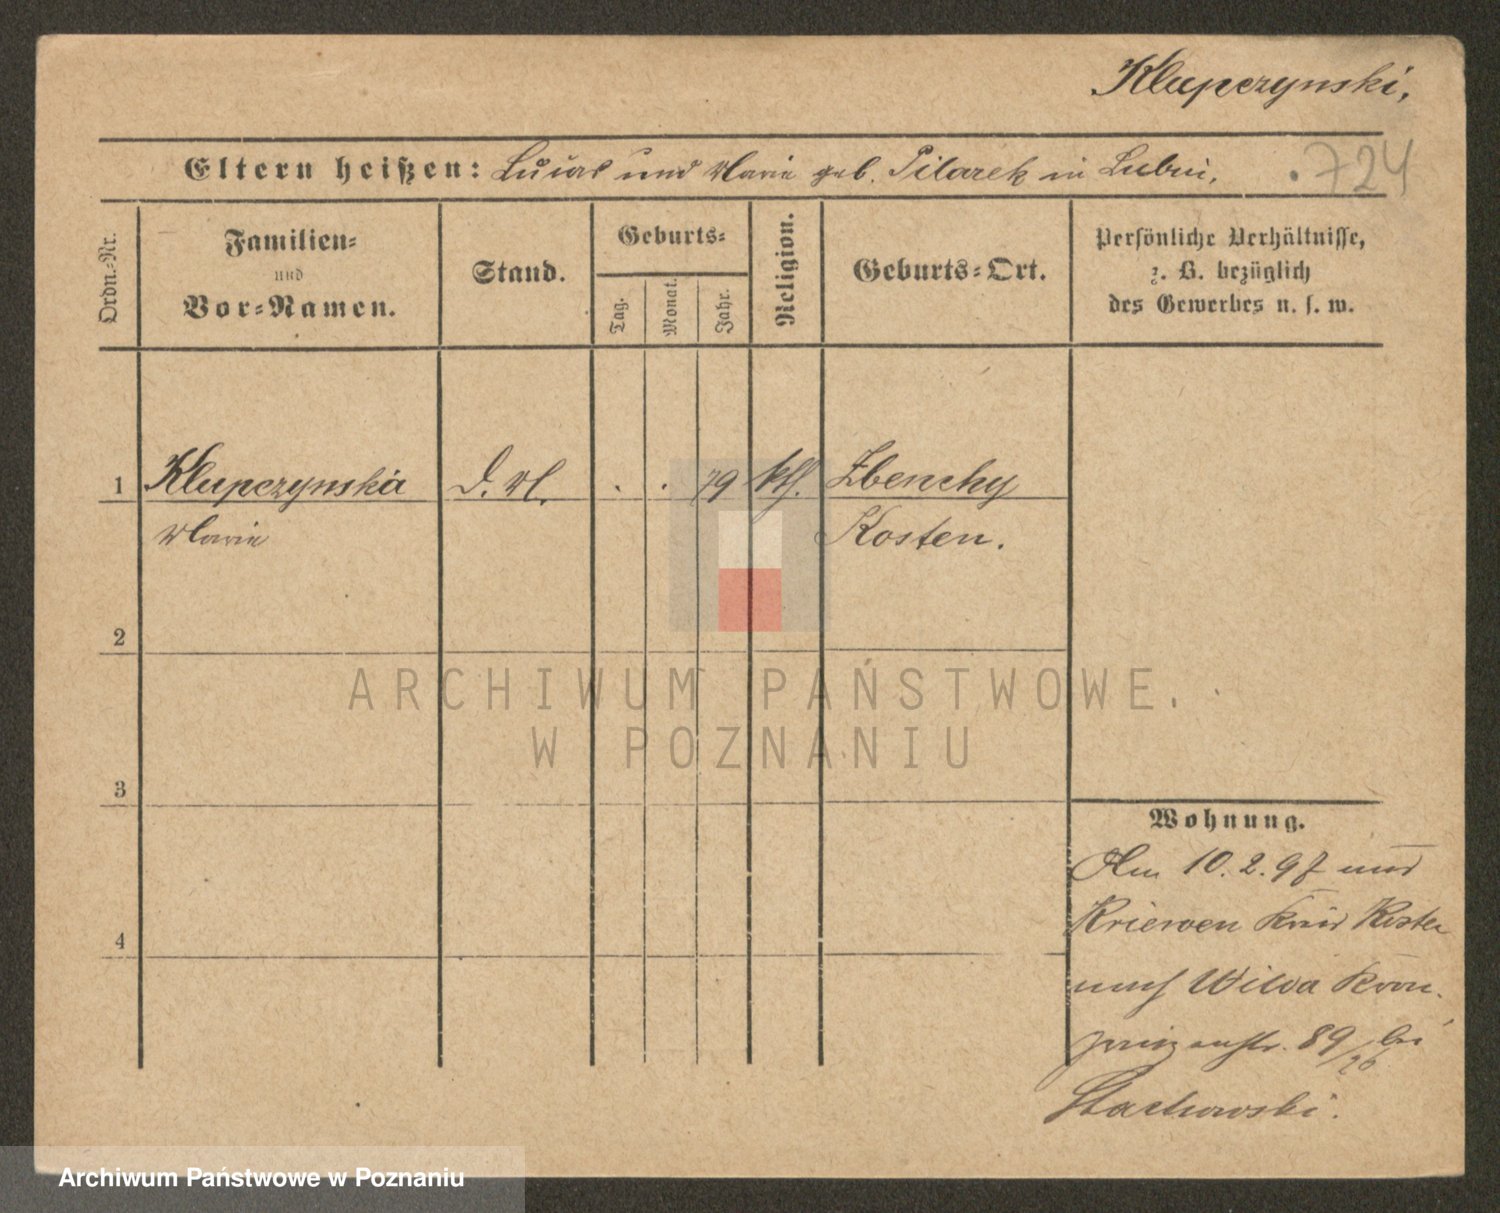 Klupczynski,
Eltern heißen: Lucas und Marie geb. Pilarek in Lubin. 724
Ordn.-Nr.
Familien-
und
Vor-Namen.
Stand.
Geburts-
Tag.
Monat.
Jahr.
Religion.
Geburts-Ort.
Persönliche Verhältnisse,
z. B. bezüglich
des Gewerbes u. s. w.
1 Klupczynska D. M. . . 79 kth. Zbenchy
Marie Kosten.
2
3
4
Wohnung.
Am 10.2.97 aus
Kriewen Kreis Kosten
nach Wilda Kron-
prinzenstr. 89/26 bei
Stachowski.
ARCHIWUM PAŃSTWOWE
W POZNANIU
Archiwum Państwowe w Poznaniu